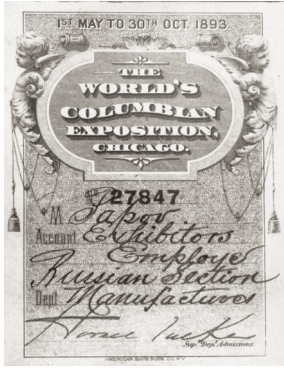 1ST MAY TO 30TH OCT. 1893.
THE
WORLD'S
COLUMBIAN
EXPOSITION,
CHICAGO.
No 27847
M Papov
Account Exhibitors
Employé
Russian Section
Dept. Manufactures
Horace Tucker
Sup. Dep. Admissions.
AMERICAN BANK NOTE CO. N.Y.